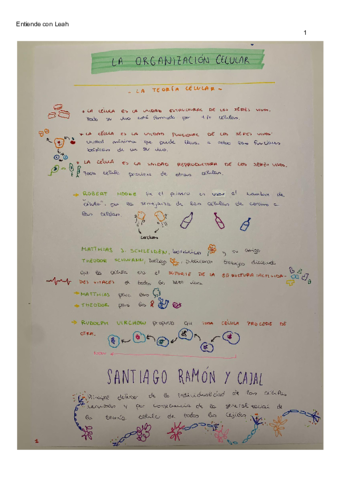 Entiende con Leah
1
LA ORGANIZACIÓN CELULAR
- LA TEORÍA CELULAR -
LA CÉLULA ES LA UNIDAD ESTRUCTURAL DE LOS SERES VIVOS.
Todo ser vivo está formado por 1/+ células.
LA CÉLULA ES LA UNIDAD FUNCIONAL DE LOS SERES VIVOS.
unidad mínima que puede llevar a cabo las funciones
básicas de un ser vivo.
LA CÉLULA ES LA UNIDAD REPRODUCTORA DE LOS SERES VIVOS.
Toda célula proviene de otras células.
ROBERT HOOKE es el primero en usar el nombre de
"célula", por la semejanza de las celdillas de corcho a
las celdas.
MATTHIAS J. SCHLEIDEN, botánico y su amigo
THEODOR SCHWANN, biólogo
que la célula era el
DE LA ESTRUCTURA
DES VITALES de todos los seres vivos.
MATTHIAS para las
THEODOR para los
RUDOLPH VIRCHOW propuso que UNA CÉLULA PROCEDE DE
OTRA.
SANTIAGO RAMÓN Y CAJAL
de la individualidad de las células
nerviosas y por consecuencia de la generalización de
la teoría celular de todos los tejidos.